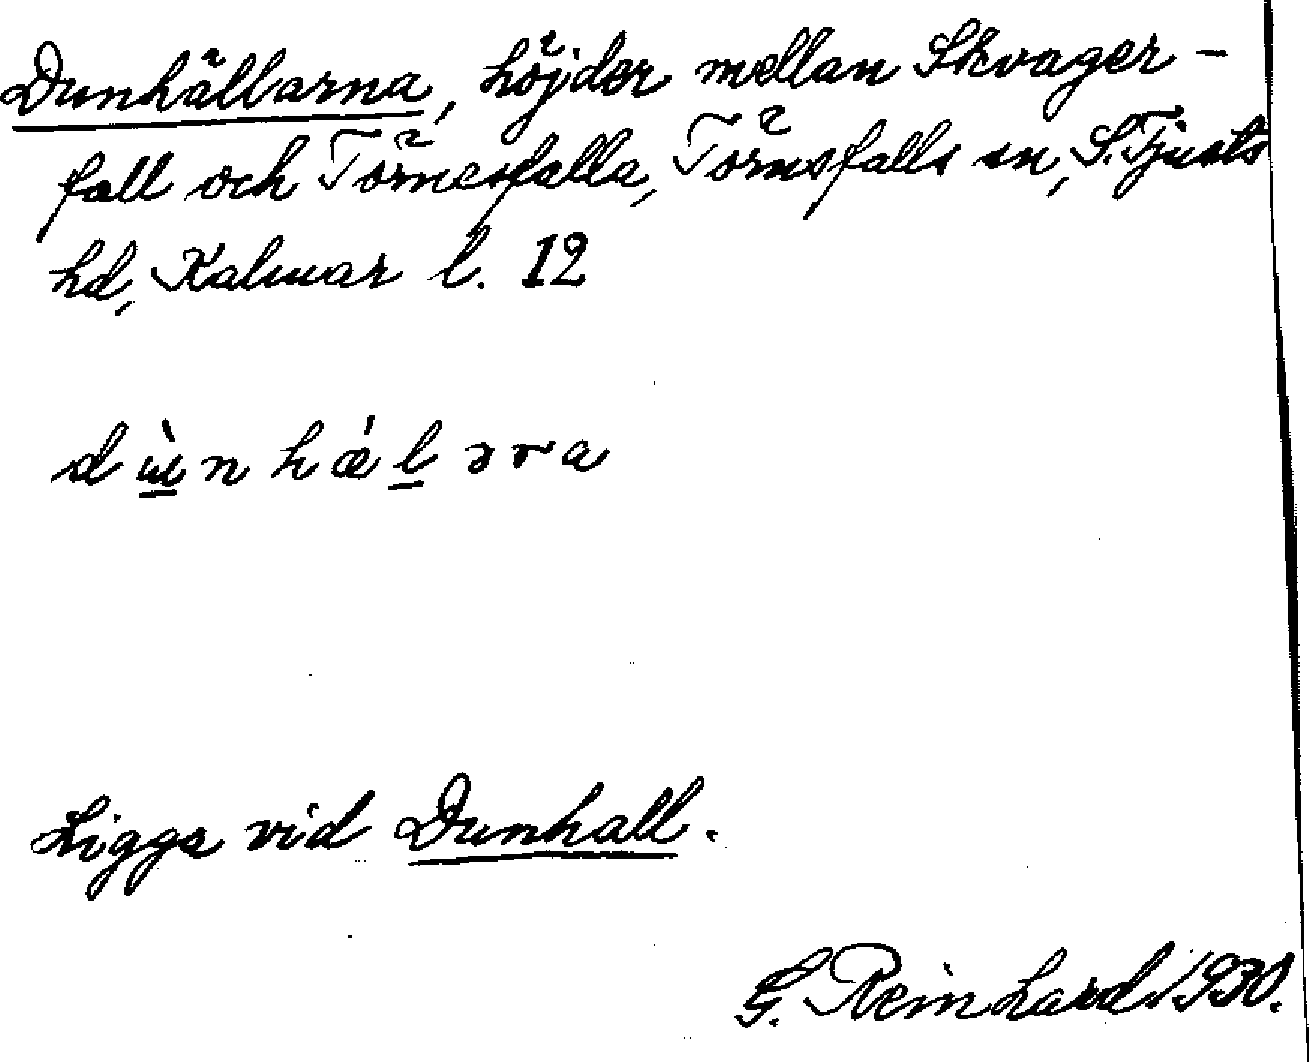 Dunhällarna, höjder mellan Skvager-
fall och Törnesfalla, Törnsfalls sn, S. Tjusts
hd, Kalmar l. 12
dùnhǽləra
Ligga vid Dunhall.
G. Reinhard 1930.